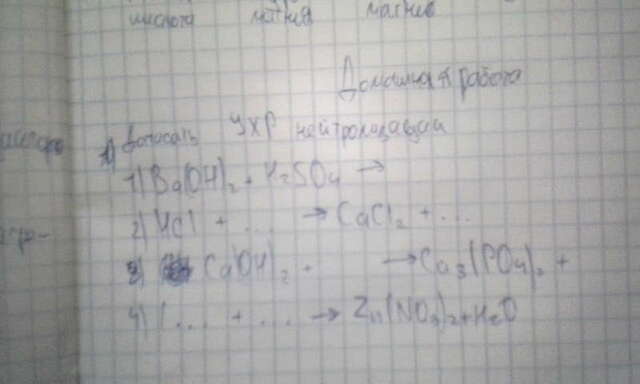 кислота магния магние
Домашняя работа
1) Записать УХР нейтрализации
1) Ba(OH)₂ + H₂SO₄ →
2) HCl + ... → CaCl₂ + ...
3) Ca(OH)₂ + → Ca₃(PO₄)₂ +
4) ... + ... → Zn(NO₃)₂ + H₂O